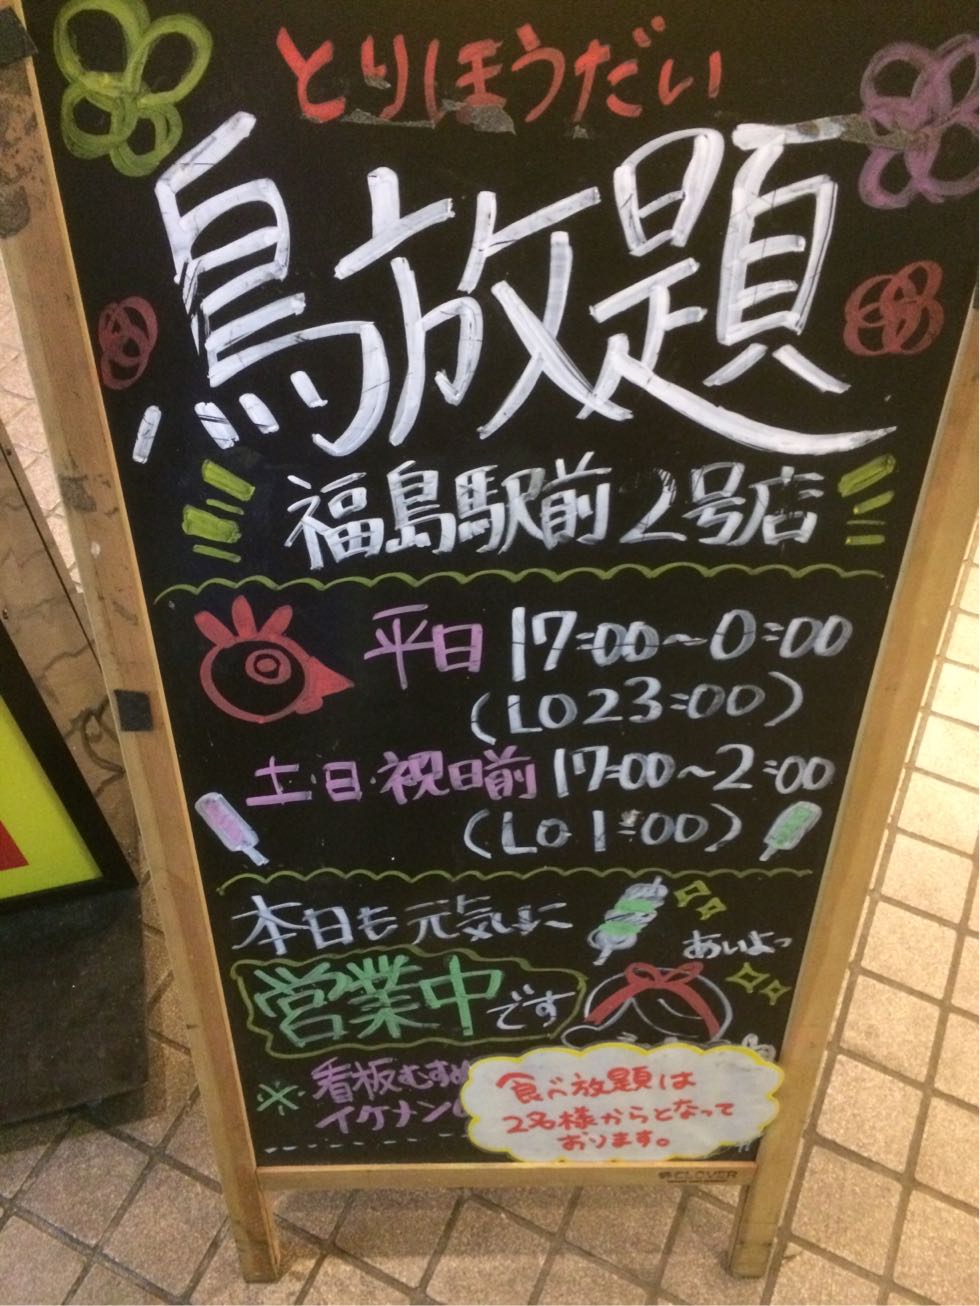 とりほうだい
鳥放題
福島駅前2号店
平日 17:00〜0:00
(LO 23:00)
土・日・祝日前 17:00〜2:00
(LO 1:00)
本日も元気に
あいよっ
営業中です
※看板むすめ
イケナン
食べ放題は
2名様からとなって
おります。
CLOVER